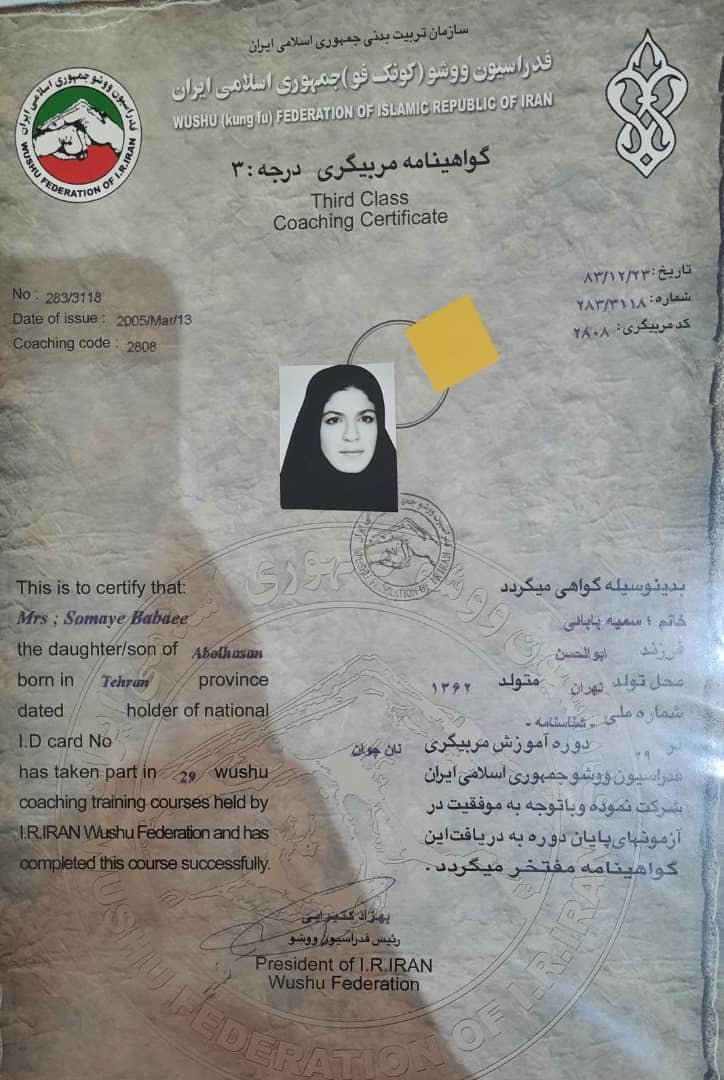 سازمان تربیت بدنی جمهوری اسلامی ایران
فدراسیون ووشو (کونگ فو) جمهوری اسلامی ایران
WUSHU (kung fu) FEDERATION OF ISLAMIC REPUBLIC OF IRAN
فدراسیون ووشو جمهوری اسلامی ایران
WUSHU FEDERATION OF I.R.IRAN
گواهینامه مربیگری درجه : ۳
Third Class
Coaching Certificate
تاریخ: ۸۳/۱۲/۲۳
شماره: ۲۸۳/۳۱۱۸
کد مربیگری: ۲۸۰۸
No : 283/3118
Date of issue : 2005/Mar/13
Coaching code : 2808
بدینوسیله گواهی میگردد
خانم ؛ سمیه بابائی
فرزند ابوالحسن
محل تولد تهران متولد ۱۳۶۲
شماره ملی - شناسنامه -
در دوره آموزش مربیگری
فدراسیون ووشو جمهوری اسلامی ایران
شرکت نموده و باتوجه به موفقیت در
آزمونهای پایان دوره به دریافت این
گواهینامه مفتخر میگردد .
This is to certify that:
Mrs ; Somaye Babaee
the daughter/son of Abolhasan
born in Tehran province
dated holder of national
I.D card No
has taken part in 29 wushu
coaching training courses held by
I.R.IRAN Wushu Federation and has
completed this course successfully.
بهزاد کتیرایی
رئیس فدراسیون ووشو
President of I.R.IRAN
Wushu Federation
WUSHU FEDERATION OF I.R.IRAN